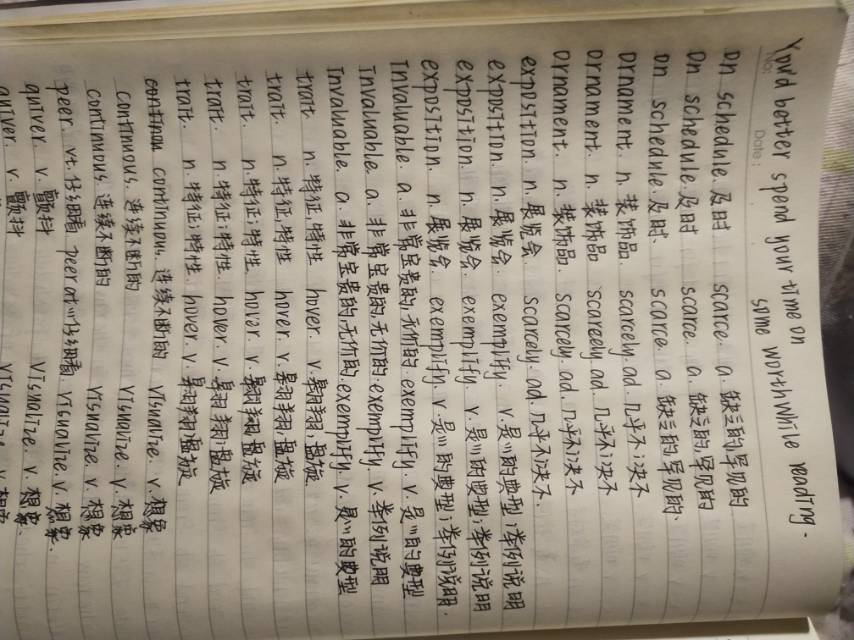 No:
Date:
You'd better spend your time on
some worthwhile reading.
on schedule 及时 scarce. a. 缺乏的,罕见的
on schedule.及时 scarce. a. 缺乏的,罕见的
on schedule.及时. scarce. a. 缺乏的,罕见的.
ornament. n. 装饰品 scarcely. ad. 几乎不;决不
ornament. n. 装饰品 scarcely. ad. 几乎不;决不
ornament. n. 装饰品. scarcely. ad. 几乎不;决不
exposition. n. 展览会 scarcely. ad. 几乎不;决不.
exposition. n. 展览会. exemplify. v.是…的典型;举例说明
exposition. n. 展览会. exemplify. v.是…的典型;举例说明
exposition. n. 展览会. exemplify. v.是…的典型;举例说明.
Invaluable. a. 非常宝贵的,无价的 exemplify. v. 是…的典型
Invaluable. a. 非常宝贵的,无价的.exemplify. v. 举例说明
Invaluable. a. 非常宝贵的,无价的.exemplify. v. 是…的典型
trait. n. 特征,特性 hover. v. 翱翔;盘旋
trait. n. 特征,特性 hover. v. 翱翔;盘旋
trait. n. 特征;特性. hover. v. 翱翔;盘旋
trait. n. 特征;特性. hover. v. 翱翔;盘旋
trait. n. 特征;特性. hover. v. 翱翔;盘旋
continuous. 连续不断的 visualize. v. 想象
continuous. 连续不断的 visualize. v. 想象
continuous. 连续不断的 visualize. v. 想象
peer. vt.仔细看 peer at…仔细看. visualize. v. 想象.
quiver. v. 颤抖 visualize. v. 想象.
quiver. v. 颤抖 visualize. v. 想象